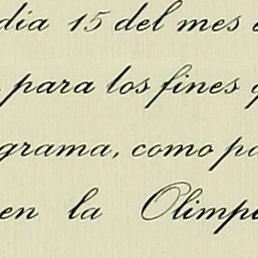 día 15 del mes
para los fines
grama, como pa
en la Olimp